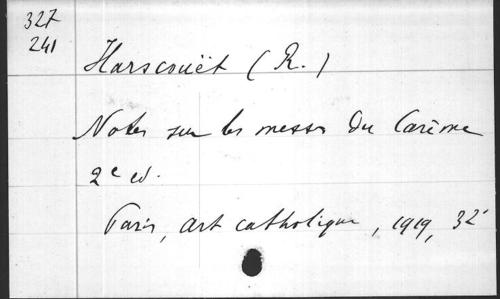 327
241
Harscouët (R.)
Notes sur les messes du Carême
2e ed.
Paris, art catholique, 1919, 32°